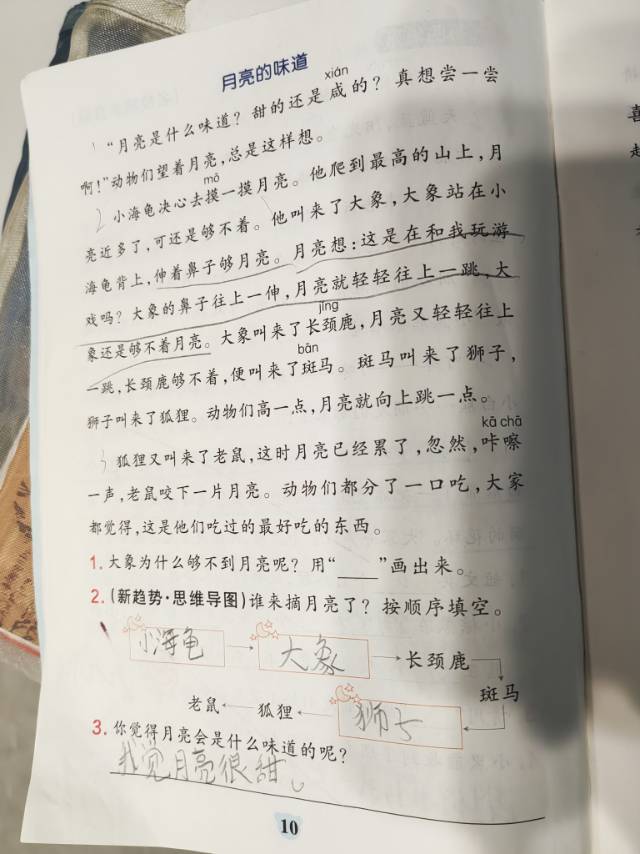 月亮的味道
xián
“月亮是什么味道？甜的还是咸的？真想尝一尝
啊！”动物们望着月亮，总是这样想。
mō
小海龟决心去摸一摸月亮。他爬到最高的山上，月
亮近多了，可还是够不着。他叫来了大象，大象站在小
海龟背上，伸着鼻子够月亮。月亮想：这是在和我玩游
戏吗？大象的鼻子往上一伸，月亮就轻轻往上一跳，大
象还是够不着月亮。大象叫来了长颈鹿，月亮又轻轻往上
jǐng
一跳，长颈鹿够不着，便叫来了斑马。斑马叫来了狮子，
bān
狮子叫来了狐狸。动物们高一点，月亮就向上跳一点。
kā chā
狐狸又叫来了老鼠，这时月亮已经累了，忽然，咔嚓
一声，老鼠咬下一片月亮。动物们都分了一口吃，大家
都觉得，这是他们吃过的最好吃的东西。
1. 大象为什么够不到月亮呢？用“____”画出来。
2. (新趋势·思维导图)谁来摘月亮了？按顺序填空。
小海龟 → 大象 → 长颈鹿
斑马
老鼠 ← 狐狸 ← 狮子
3. 你觉得月亮会是什么味道的呢？
我觉月亮很甜。
10